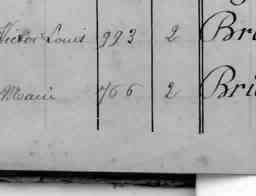 Victor Louis 993 2 Br
Marie 766 2 Bri